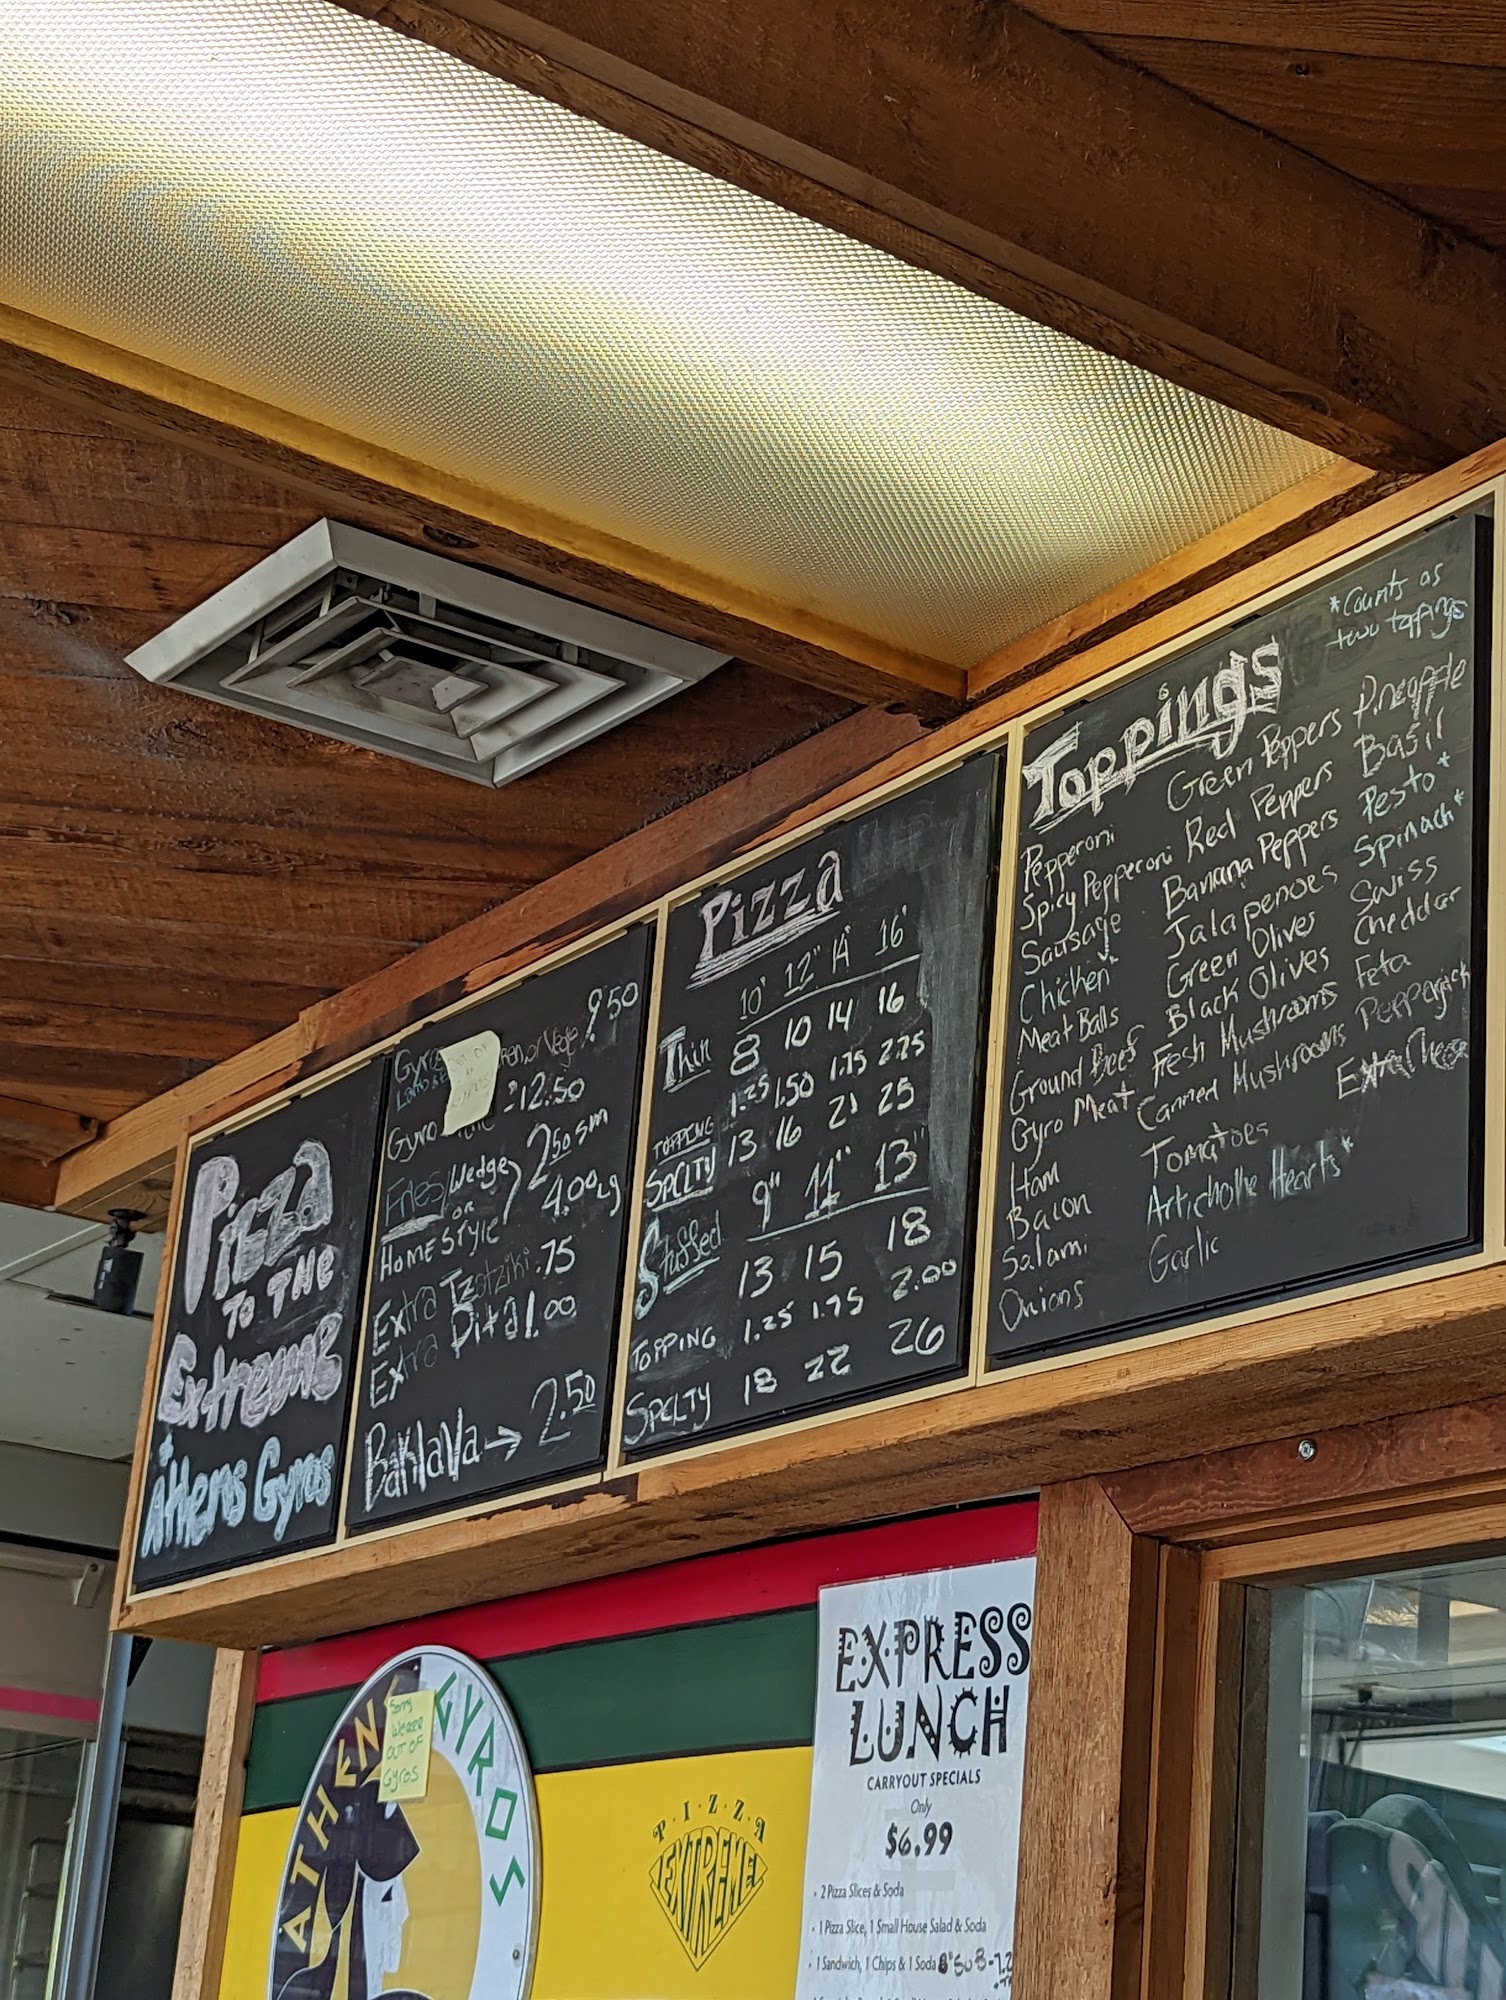 Pizza
TO THE
Extreme
+
Athens Gyros
Gyro
or Vege 9.50
Gyro 12.50
Fries/Wedge 2.50 sm
or
HOME STYLE 4.00 Lg
Extra Tzatziki .75
Extra Pita 1.00
BaklaVa → 2.50
Pizza
10" 12" 14" 16"
Thin 8 10 14 16
TOPPING 1.25 1.50 1.75 2.25
SPCLTY 13 16 21 25
Stuffed 9" 11" 13"
13 15 18
TOPPING 1.25 1.75 2.00
SPCLTY 18 22 26
Toppings
*Counts as
two toppings
Pepperoni
Spicy Pepperoni
Sausage
Chicken*
Meat Balls
Ground Beef
Gyro Meat
Ham
Bacon
Salami
Onions
Green Peppers
Red Peppers
Banana Peppers
Jalapenoes
Green Olives
Black Olives
Fresh Mushrooms
Canned Mushrooms
Tomatoes
Artichoke Hearts*
Garlic
Pineapple
Basil
Pesto*
Spinach*
Swiss
Cheddar
Feta
Pepperjack
Extra Cheese
ATHENS GYROS
Sorry
OUT OF
Gyros
PIZZA
EXTREME!
EXPRESS
LUNCH
CARRYOUT SPECIALS
Only
$6.99
• 2 Pizza Slices & Soda
• 1 Pizza Slice, 1 Small House Salad & Soda
• 1 Sandwich, 1 Chips & 1 Soda 8" SUB-7.2